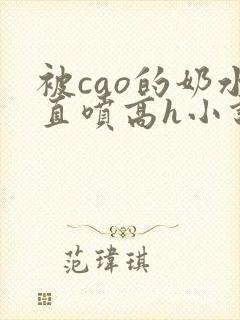 被cao的奶水
直喷高h小
范瑋琪